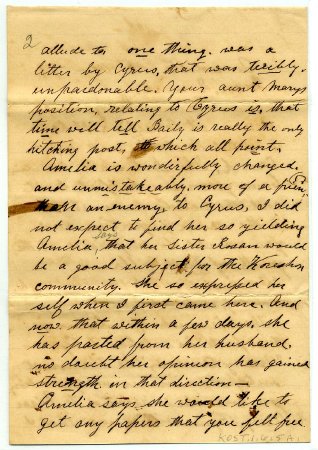 2
allude to, one thing, was a
litter by Cyrus, that was teribly
unpardonable. Your aunt Marys
position, relating to Cyrus is, that
time will tell Baily is really the only
hitching post, to which all point.
Amelia is wonderfully changed,
and unmistakeably, more of a frien
than an enemy, to Cyrus, I did
not expect to find her so yielding
Amelia, says, that her Sister Rosan would
be a good subject for the Koreshn
community. She so expressed her
self when I first came here. And
now that within a few days, she
has parted from her husband,
no doubt her opinion has gained
strength in that direction—
Amelia says she would like to
get any papers that you felt free